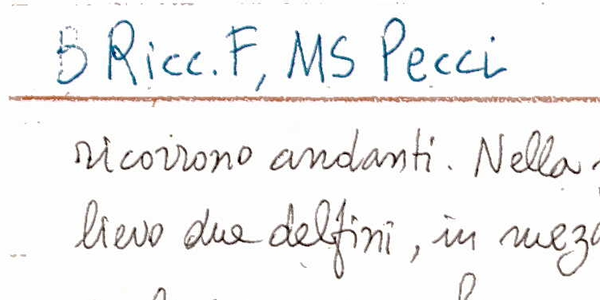 B Ricc. F, MS Pecci
ricorrono andanti. Nella
lievo due delfini, in